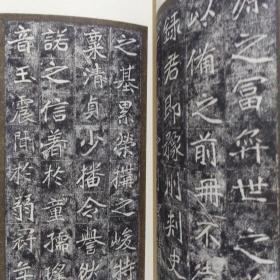 源之富弈世之
以備之前冊不
錄君即豫州刺史
之基累榮構之峻特
稟清貞少播令譽然
諾之信著於童孺瑤
音玉震聞於弱冠年